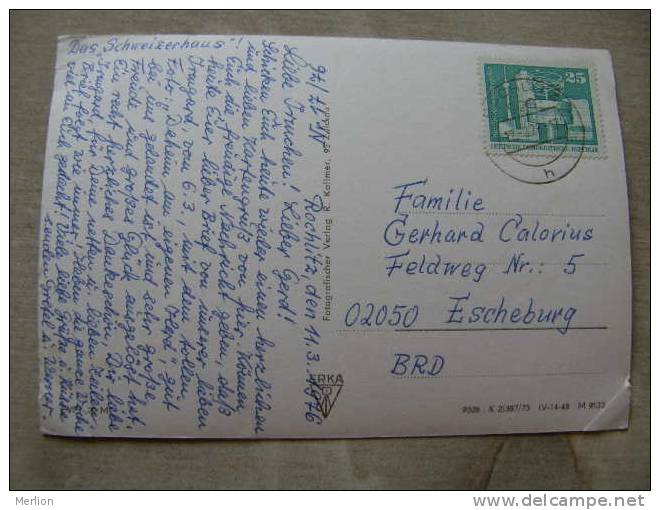 "Das Schweizerhaus"!
Nr. 17/76
Rochlitz, den 11.3.1976
Liebe Irmchen! Lieber Gerd!
Schicken Euch heute wieder einen herzlichen
und lieben Kartengruß von hier. Können
Euch die freudige Nachricht geben, daß
heute Euer lieber Brief von unserer lieben
Irmgard, vom 6.3. mit dem tollen
Foto: "Daheim am eigenen Herd", gut
bei uns gelandet ist und sehr große
Freude und großes Glück ausgelöst hat.
Ein recht herzliches Dankeschön, Dir liebe
Irmgard, für Deine netten u. lieben Zeilen.
Brief folgt wie immer! Haben die ganze Woche
viel an Euch gedacht! Viele liebe Grüße u. Küsse
senden Gretel u. Werner.
Fotografischer Verlag R. Kallmer, 95 Zwickau
ERKA
25
DEUTSCHE DEMOKRATISCHE REPUBLIK
h
Familie
Gerhard Calorius
Feldweg Nr.: 5
02050 Escheburg
BRD
9306 K 2/387/75 IV-14-48 M 9533
Merlion
www.delcampe.net